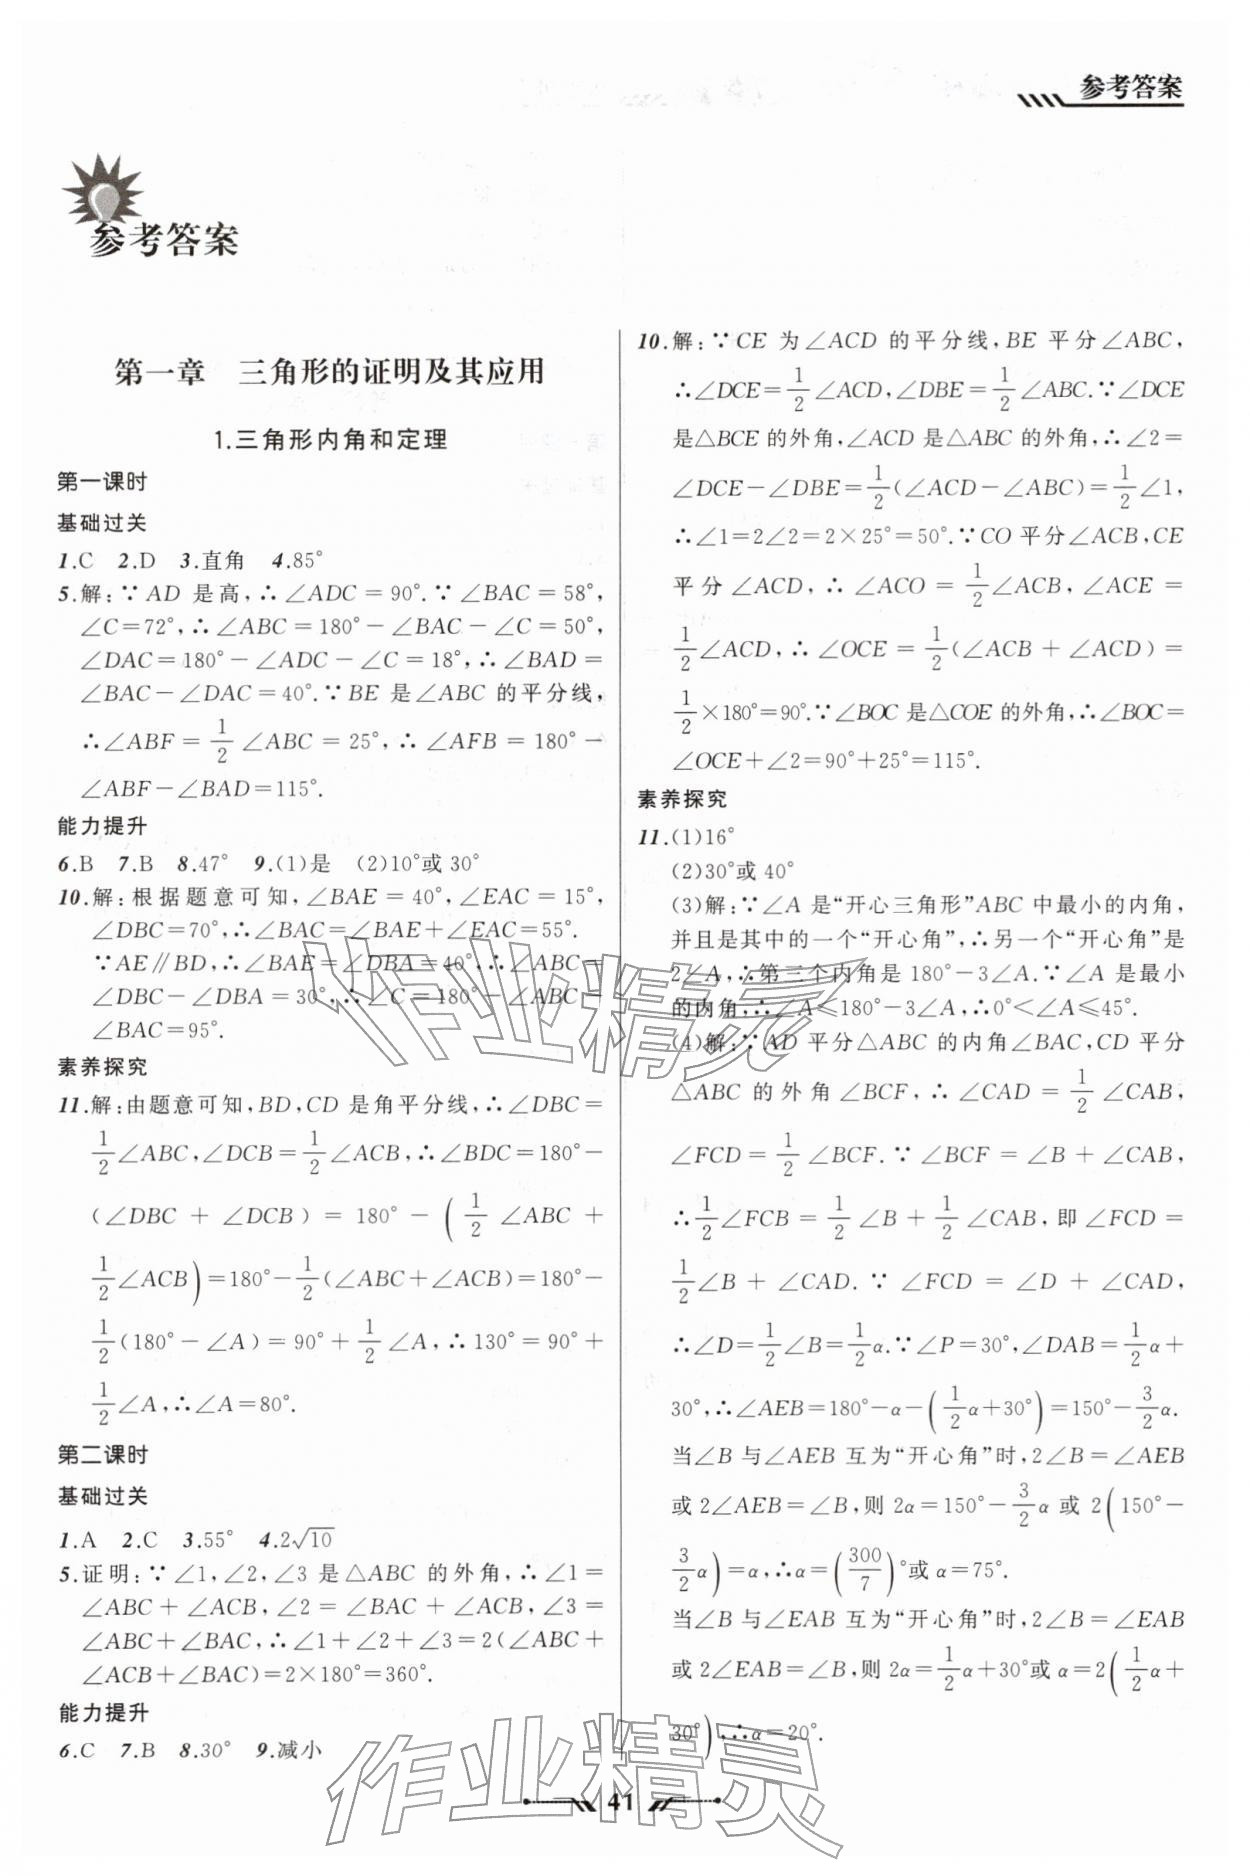 参考答案
参考答案
第一章　三角形的证明及其应用
1.三角形内角和定理
第一课时
基础过关
1.C　2.D　3.直角　4.85°
5.解:∵AD 是高,∴∠ADC=90°.∵∠BAC=58°,
∠C=72°,∴∠ABC=180°-∠BAC-∠C=50°,
∠DAC=180°-∠ADC-∠C=18°,∴∠BAD=
∠BAC-∠DAC=40°.∵BE 是∠ABC 的平分线,
∴∠ABF=1/2∠ABC=25°,∴∠AFB=180°-
∠ABF-∠BAD=115°.
能力提升
6.B　7.B　8.47°　9.(1)是　(2)10°或30°
10.解:根据题意可知,∠BAE=40°,∠EAC=15°,
∠DBC=70°,∴∠BAC=∠BAE+∠EAC=55°.
∵AE∥BD,∴∠BAE=∠DBA=40°,∴∠ABC=
∠DBC-∠DBA=30°,∴∠C=180°-∠ABC-
∠BAC=95°.
素养探究
11.解:由题意可知,BD,CD 是角平分线,∴∠DBC=
1/2∠ABC,∠DCB=1/2∠ACB,∴∠BDC=180°-
(∠DBC+∠DCB)=180°-(1/2∠ABC+
1/2∠ACB)=180°-1/2(∠ABC+∠ACB)=180°-
1/2(180°-∠A)=90°+1/2∠A,∴130°=90°+
1/2∠A,∴∠A=80°.
第二课时
基础过关
1.A　2.C　3.55°　4.2√10
5.证明:∵∠1,∠2,∠3 是△ABC 的外角,∴∠1=
∠ABC+∠ACB,∠2=∠BAC+∠ACB,∠3=
∠ABC+∠BAC,∴∠1+∠2+∠3=2(∠ABC+
∠ACB+∠BAC)=2×180°=360°.
能力提升
6.C　7.B　8.30°　9.减小
10.解:∵CE 为∠ACD 的平分线,BE 平分∠ABC,
∴∠DCE=1/2∠ACD,∠DBE=1/2∠ABC.∵∠DCE
是△BCE 的外角,∠ACD 是△ABC 的外角,∴∠2=
∠DCE-∠DBE=1/2(∠ACD-∠ABC)=1/2∠1,
∴∠1=2∠2=2×25°=50°.∵CO 平分∠ACB,CE
平分∠ACD,∴∠ACO=1/2∠ACB,∠ACE=
1/2∠ACD,∴∠OCE=1/2(∠ACB+∠ACD)=
1/2×180°=90°.∵∠BOC 是△COE 的外角,∴∠BOC=
∠OCE+∠2=90°+25°=115°.
素养探究
11.(1)16°
(2)30°或40°
(3)解:∵∠A 是“开心三角形”ABC 中最小的内角,
并且是其中的一个“开心角”,∴另一个“开心角”是
2∠A,∴第三个内角是180°-3∠A.∵∠A 是最小
的内角,∴∠A≤180°-3∠A,∴0°<∠A≤45°.
(4)解:∵AD 平分△ABC 的内角∠BAC,CD 平分
△ABC 的外角∠BCF,∴∠CAD=1/2∠CAB,
∠FCD=1/2∠BCF.∵∠BCF=∠B+∠CAB,
∴1/2∠FCB=1/2∠B+1/2∠CAB,即∠FCD=
1/2∠B+∠CAD.∵∠FCD=∠D+∠CAD,
∴∠D=1/2∠B=1/2α.∵∠P=30°,∠DAB=1/2α+
30°,∴∠AEB=180°-α-(1/2α+30°)=150°-3/2α.
当∠B 与∠AEB 互为“开心角”时,2∠B=∠AEB
或2∠AEB=∠B,则2α=150°-3/2α 或2(150°-
3/2α)=α,∴α=(300/7)°或α=75°.
当∠B 与∠EAB 互为“开心角”时,2∠B=∠EAB
或2∠EAB=∠B,则2α=1/2α+30°或α=2(1/2α+
30°),∴α=20°.
作业精灵
作业精灵
41